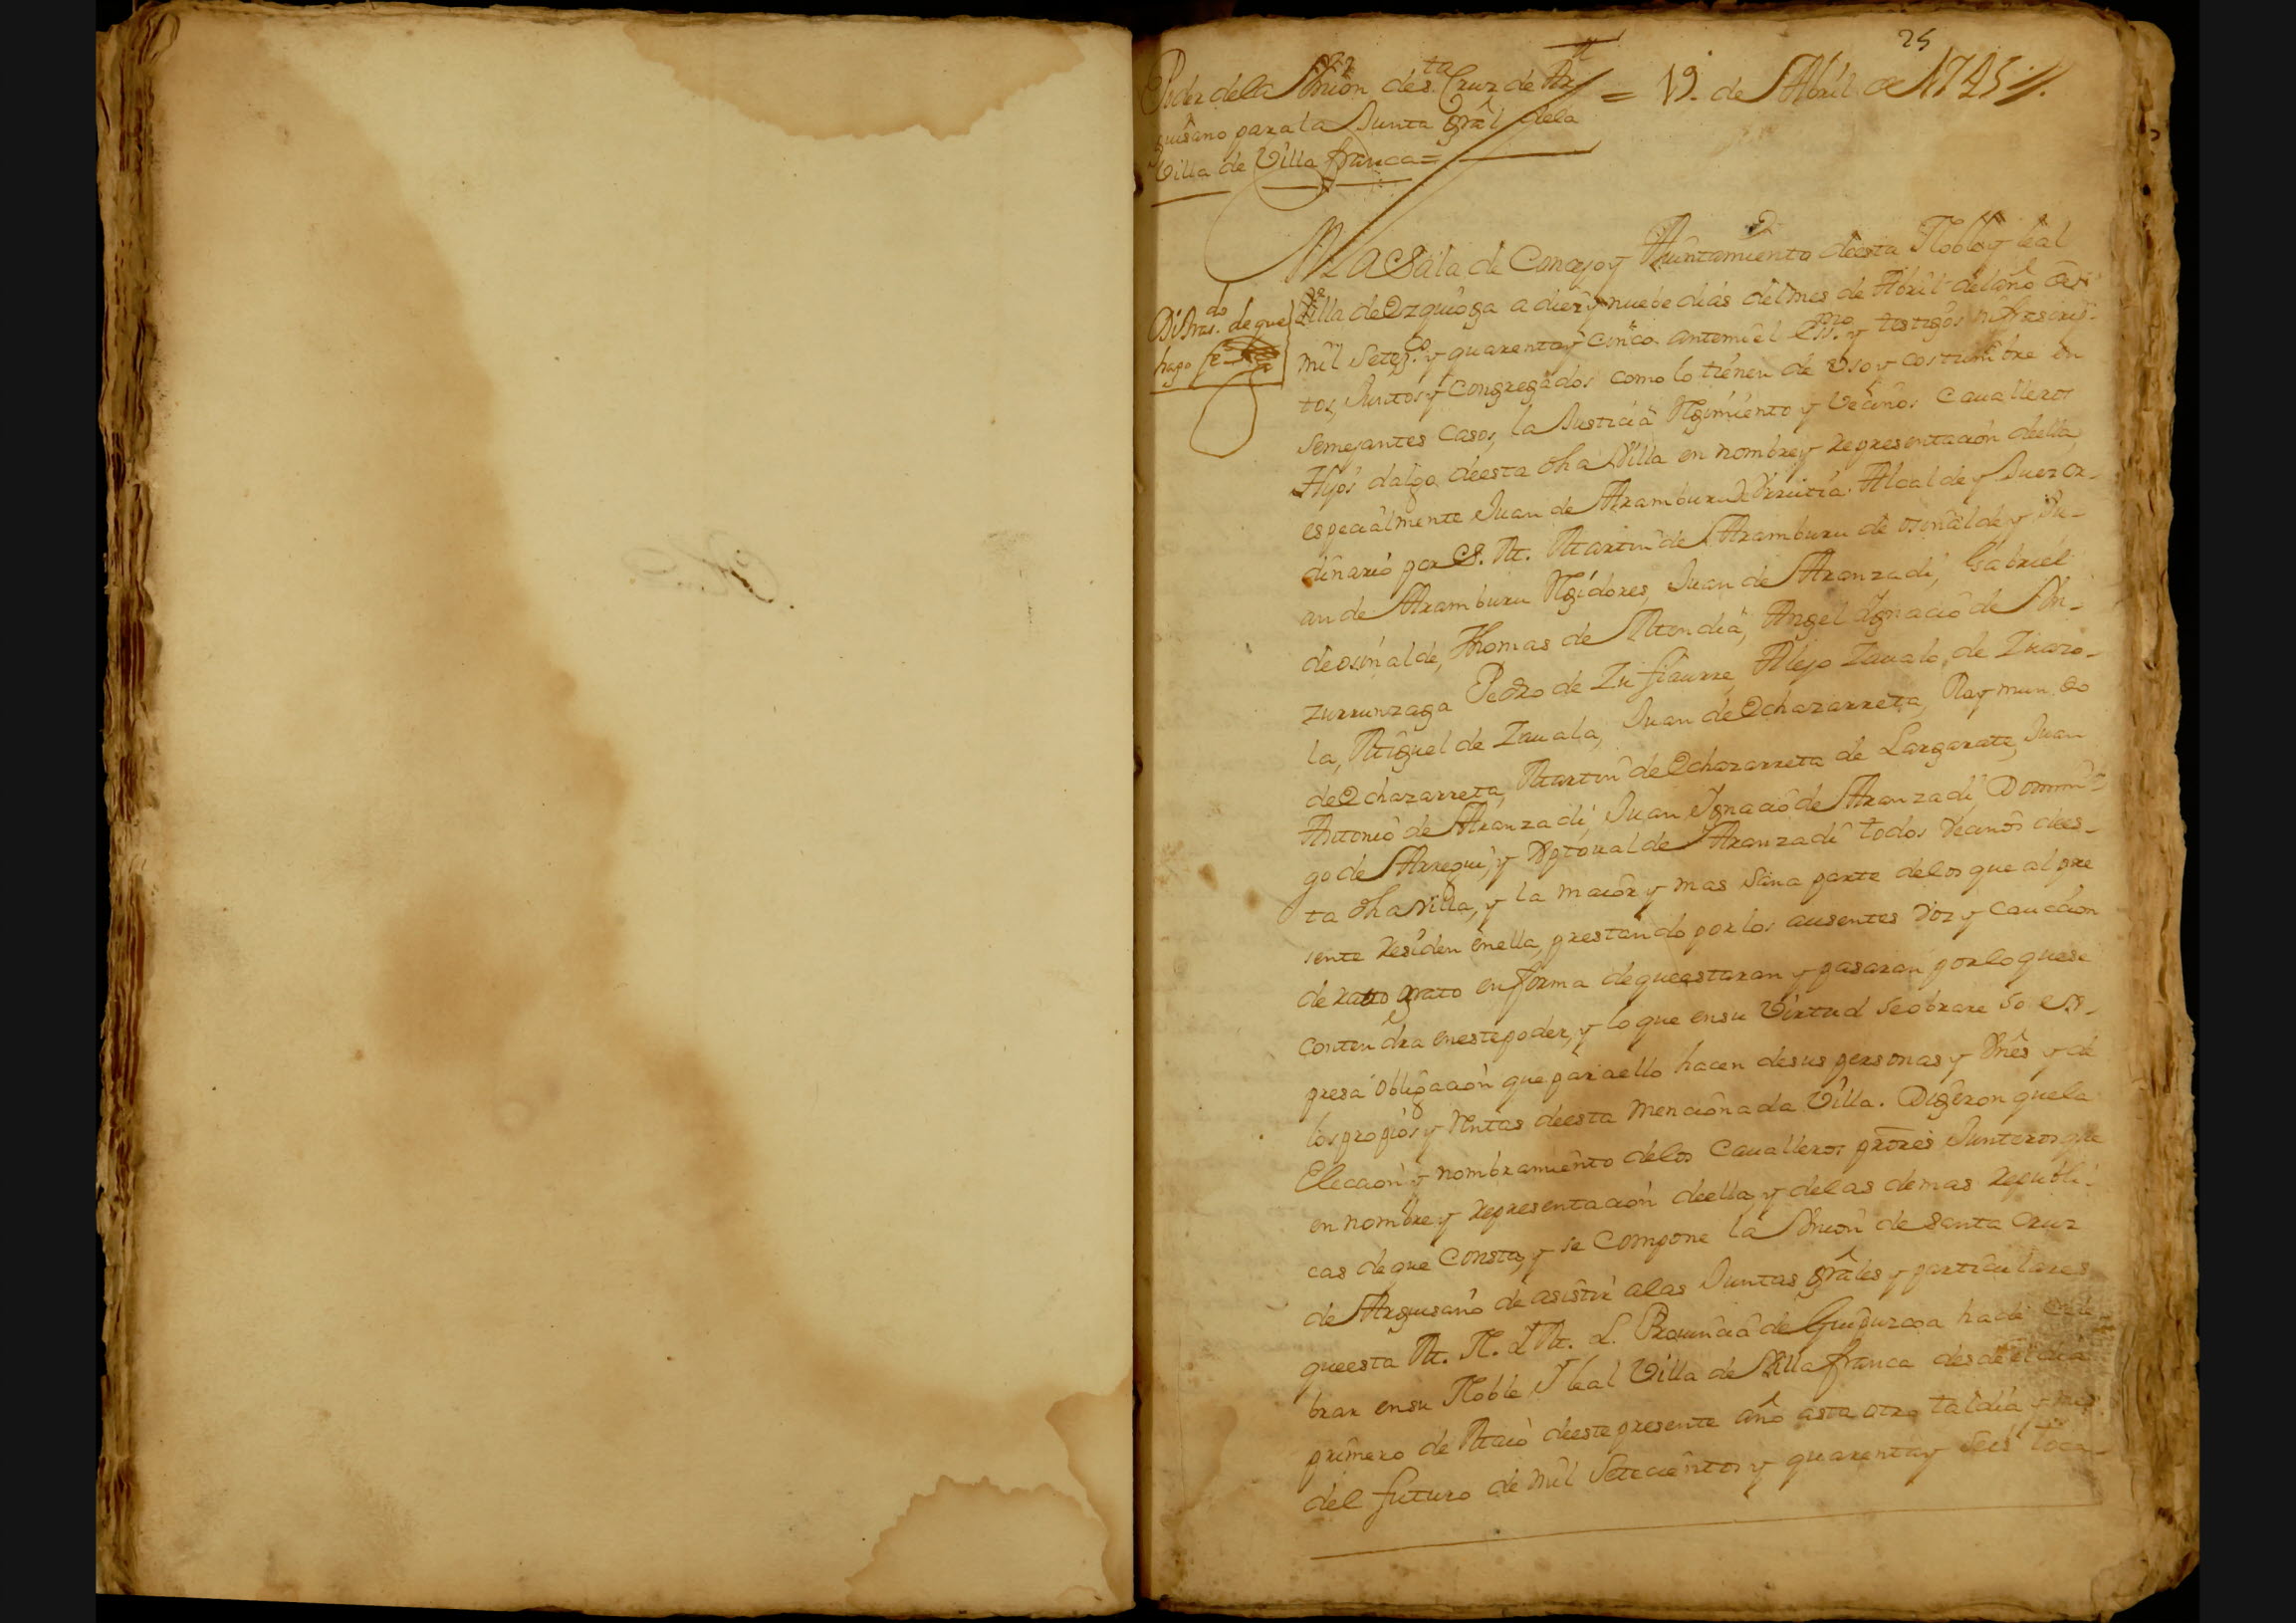 25
Poder dela Union de s.ta Cruz de Ar
guisano para la Junta Gràl dela
Villa de Villa franca =
= 19. de Abril de 1745
En la Sala de Concejo y Aiuntamiento deesta Noble y leal
Villa de Ezquioga a diez y nuebe dias del mes de Abril del año de
mil Setez.os y quarenta y Cinco. antemi el ess.no y testigos infrascrip-
tos, Juntos y Congregados como lo tienen de uso y costumbre en
semejantes Casos, la Justicia Regimiento y Vecinos Caualleros
Hijos dalgo deesta dha Villa en nombre y representacion deella,
especialmente Juan de Aramburu Vrrutia Alcalde y Juez or-
dinario por S. M. Martin de Aramburu de osinalde, y Ju-
an de Aramburu Regidores, Juan de Aranzadi, Gabriel
de osinalde, Thomas de Atondia, Angel Ygnacio de An-
zurrunzaga Pedro de Zufiaurre, Alejo Zauala, de Zuazo-
la, Miguel de Zauala, Juan de Echazarreta, Raymundo
de Echazarreta, Martin de Echazarreta de Largarate, Juan
Antonio de Aranzadi, Juan Ignacio de Aranzadi, Domin-
go de Arregui, y Xptoual de Aranzadi todos vecinos dees-
ta dha villa, y la maior y mas sana parte delos que al pre
sente residen enella, prestando por los ausentes voz y Caucion
de ratto grato en forma de que estaran y pasaran por lo quese
Contendra eneste poder, y lo que ensu Virtud se obrare so ex-
presa obligacion que para ello hacen desus personas y Vnes y de
los propios y Rentas deesta mencionada Villa. Digeron quela
Eleccion y nombramiento delos Caualleros prores Junteros que
en nombre y representacion deella y delas demas republi-
cas de que Consta, y se Compone la Vnion de Santa Cruz
de Arguisano de asistir alas Juntas Gràles y particulares
queesta M. N. Y M. L. Prouincia de Guipuzcoa hade cele-
brar ensu Noble Y leal Villa de Villa franca desde el dia
primero de Maio deeste presente año asta otro tal dia y mes
del futuro de mil Setecientos y quarenta y seis toca-
Di tras.do de que
hago fe